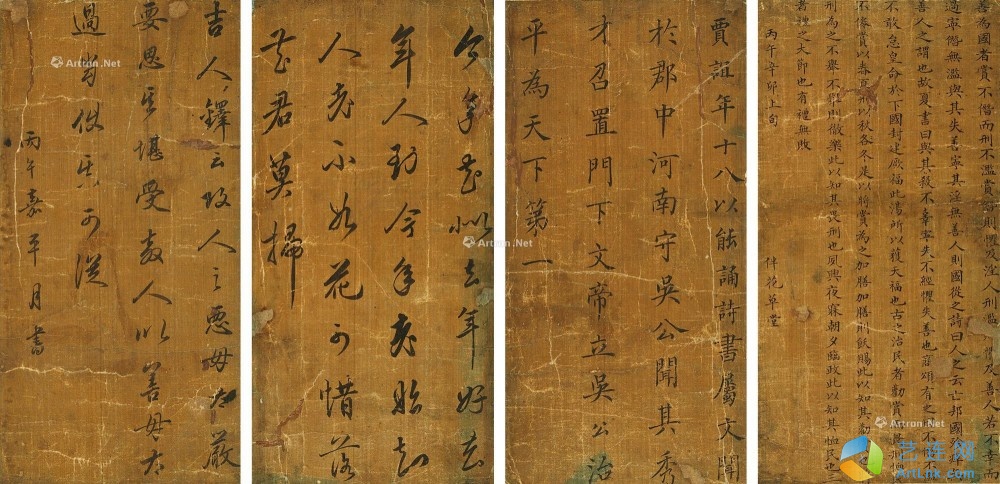 善為國者賞不僭而刑不濫賞僭則懼及淫人刑濫則懼及善人若不幸而
過寧僭無濫與其失善寧其淫無善人則國從之詩曰人之云亡邦國殄
善人之謂也故夏書曰與其殺不辜寧失不經懼失善也商頌有之曰不僭不
不敢怠皇命於下國封建厥福此湯所以獲天福也古之治民者勸賞而畏刑恤
不倦賞以春夏刑以秋冬是以將賞為之加膳加膳則飫賜此以知其勸
刑為之不舉不舉則徹樂此以知其畏刑也夙興夜寐朝夕臨政此以知其恤民也三
者禮之大節也有禮無敗
丙午辛卯上旬 伴花草堂
賈誼年十八以能誦詩書屬文聞
於郡中河南守吳公聞其秀
才召置門下文帝立吳公治
平為天下第一
今年花似去年好去
年人到今年老始知
人老不如花可惜落
花君莫掃
吉人鐸云攻人之惡毋太嚴
要思其堪受教人以善毋太
過當使其可從
丙午嘉平月書
Artron.Net
Artron.Net
Artron.Net
Artron.Net
Artron.Net
Artron.Net
Artron.Net
艺连网
ArtLnk.com